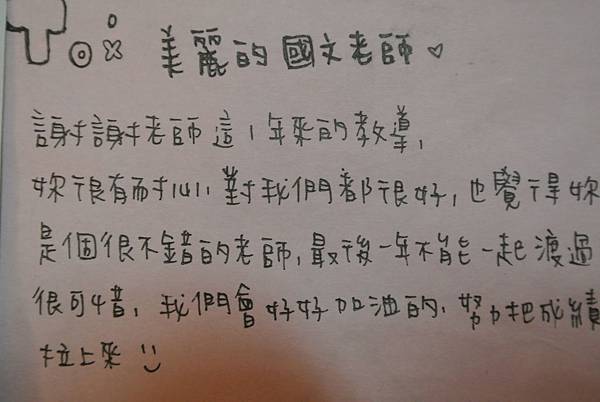 美麗的國文老師♡
謝謝老師這1年來的教導,
妳很有耐心,對我們都很好,也覺得妳
是個很不錯的老師,最後一年不能一起渡過
很可惜,我們會好好加油的,努力把成績
拉上來